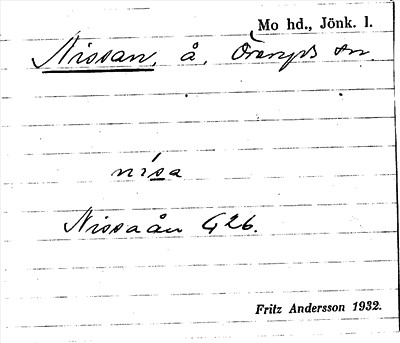 Mo hd., Jönk. l.
Nissan, å, Öreryds sn.
nísa
Nissaån G26.
Fritz Andersson 1932.